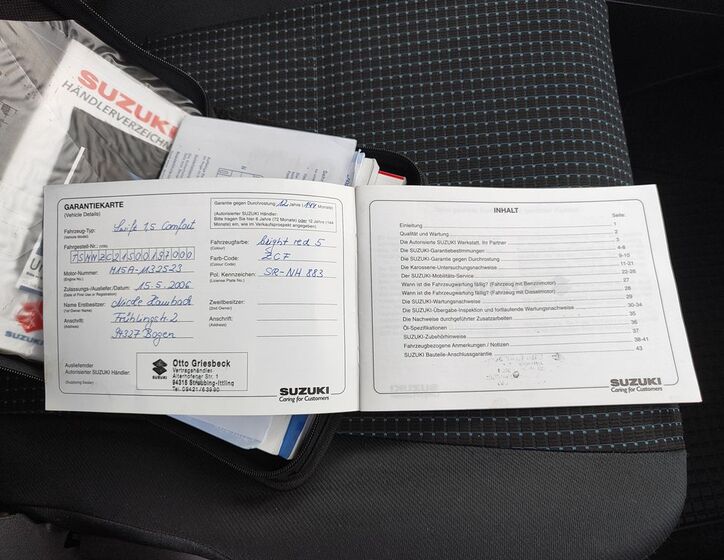 SUZUKI
HÄNDLERVERZEICHN
GARANTIEKARTE
(Vehicle Details)
Fahrzeug-Typ: Swift 1,5 Comfort
(Vehicle Model)
Fahrgestell-Nr.: (VIN)
TSMMZC21S00197000
Motor-Nummer: M15A-1132523
(Engine No.)
Zulassungs-/Auslief./Datum: 15.5.2006
(Date of First Use or Registration)
Name Erstbesitzer: Nicole Laubach
(1st Owner Name)
Anschrift: Frühlingstr. 2
(Address)
94327 Bogen
Ausliefernder
Autorisierter SUZUKI Händler:
(Supplying Dealer)
Otto Griesbeck
Vertragshändler
Alterhofener Str. 1
94315 Straubing-Ittling
Tel. 09421/63980
Garantie gegen Durchrostung 12 Jahre (144 Monate)
(Autorisierter SUZUKI Händler:
Bitte tragen Sie hier 6 Jahre (72 Monate) oder 12 Jahre (144
Monate) ein, wie im Verkaufsprospekt angegeben.)
Fahrzeugfarbe: Bright red 5
(Colour)
Farb-Code: ZCF
(Colour Code)
Pol. Kennzeichen: SR-NH 883
(License Plate No.)
Zweitbesitzer:
(2nd Owner)
Anschrift:
(Address)
SUZUKI
Caring for Customers
INHALT
Seite:
Einleitung 1
Qualität und Wartung 2
Die Autorisierte SUZUKI Werkstatt, Ihr Partner 3
Die SUZUKI-Garantiebestimmungen 4-8
Die SUZUKI-Garantie gegen Durchrostung 9-10
Die Karosserie-Untersuchungsnachweise 11-21
Der SUZUKI-Mobilitäts-Service 22-26
Wann ist die Fahrzeugwartung fällig? (Fahrzeug mit Benzinmotor) 27
Wann ist die Fahrzeugwartung fällig? (Fahrzeug mit Dieselmotor) 28
Die SUZUKI-Wartungsnachweise 29
Die SUZUKI-Übergabe-Inspektion und fortlaufende Wartungsnachweise 30-34
Die Nachweise durchgeführter Zusatzarbeiten 35
Öl-Spezifikationen 36
SUZUKI-Zubehörhinweise 37
Fahrzeugbezogene Anmerkungen / Notizen 38-41
SUZUKI Bauteile-Anschlussgarantie 43
SUZUKI
Caring for Customers